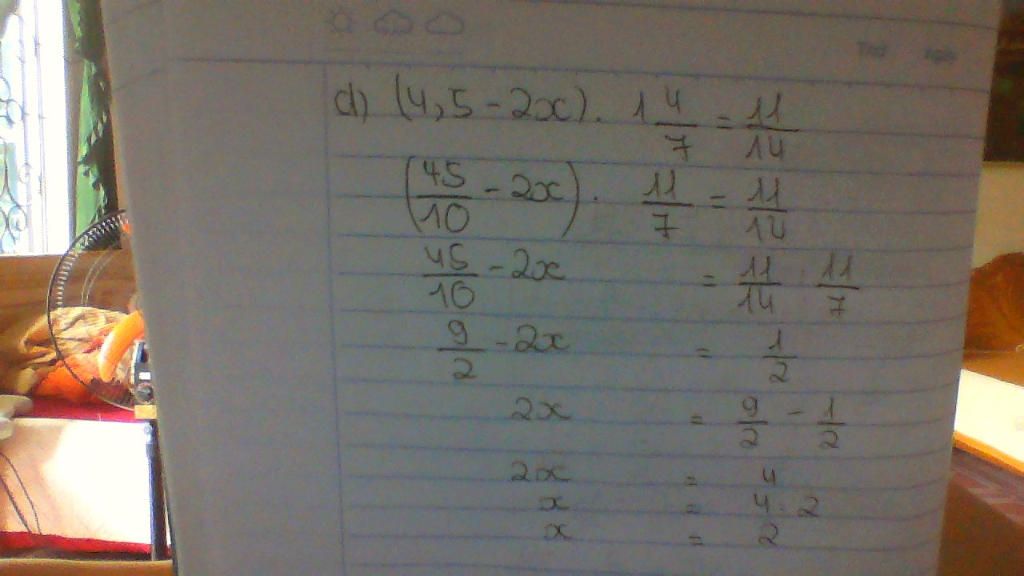 d) (4,5 - 2x). 1 4/7 = 11/14
(45/10 - 2x). 11/7 = 11/14
45/10 - 2x = 11/14 : 11/7
9/2 - 2x = 1/2
2x = 9/2 - 1/2
2x = 4
x = 4 : 2
x = 2